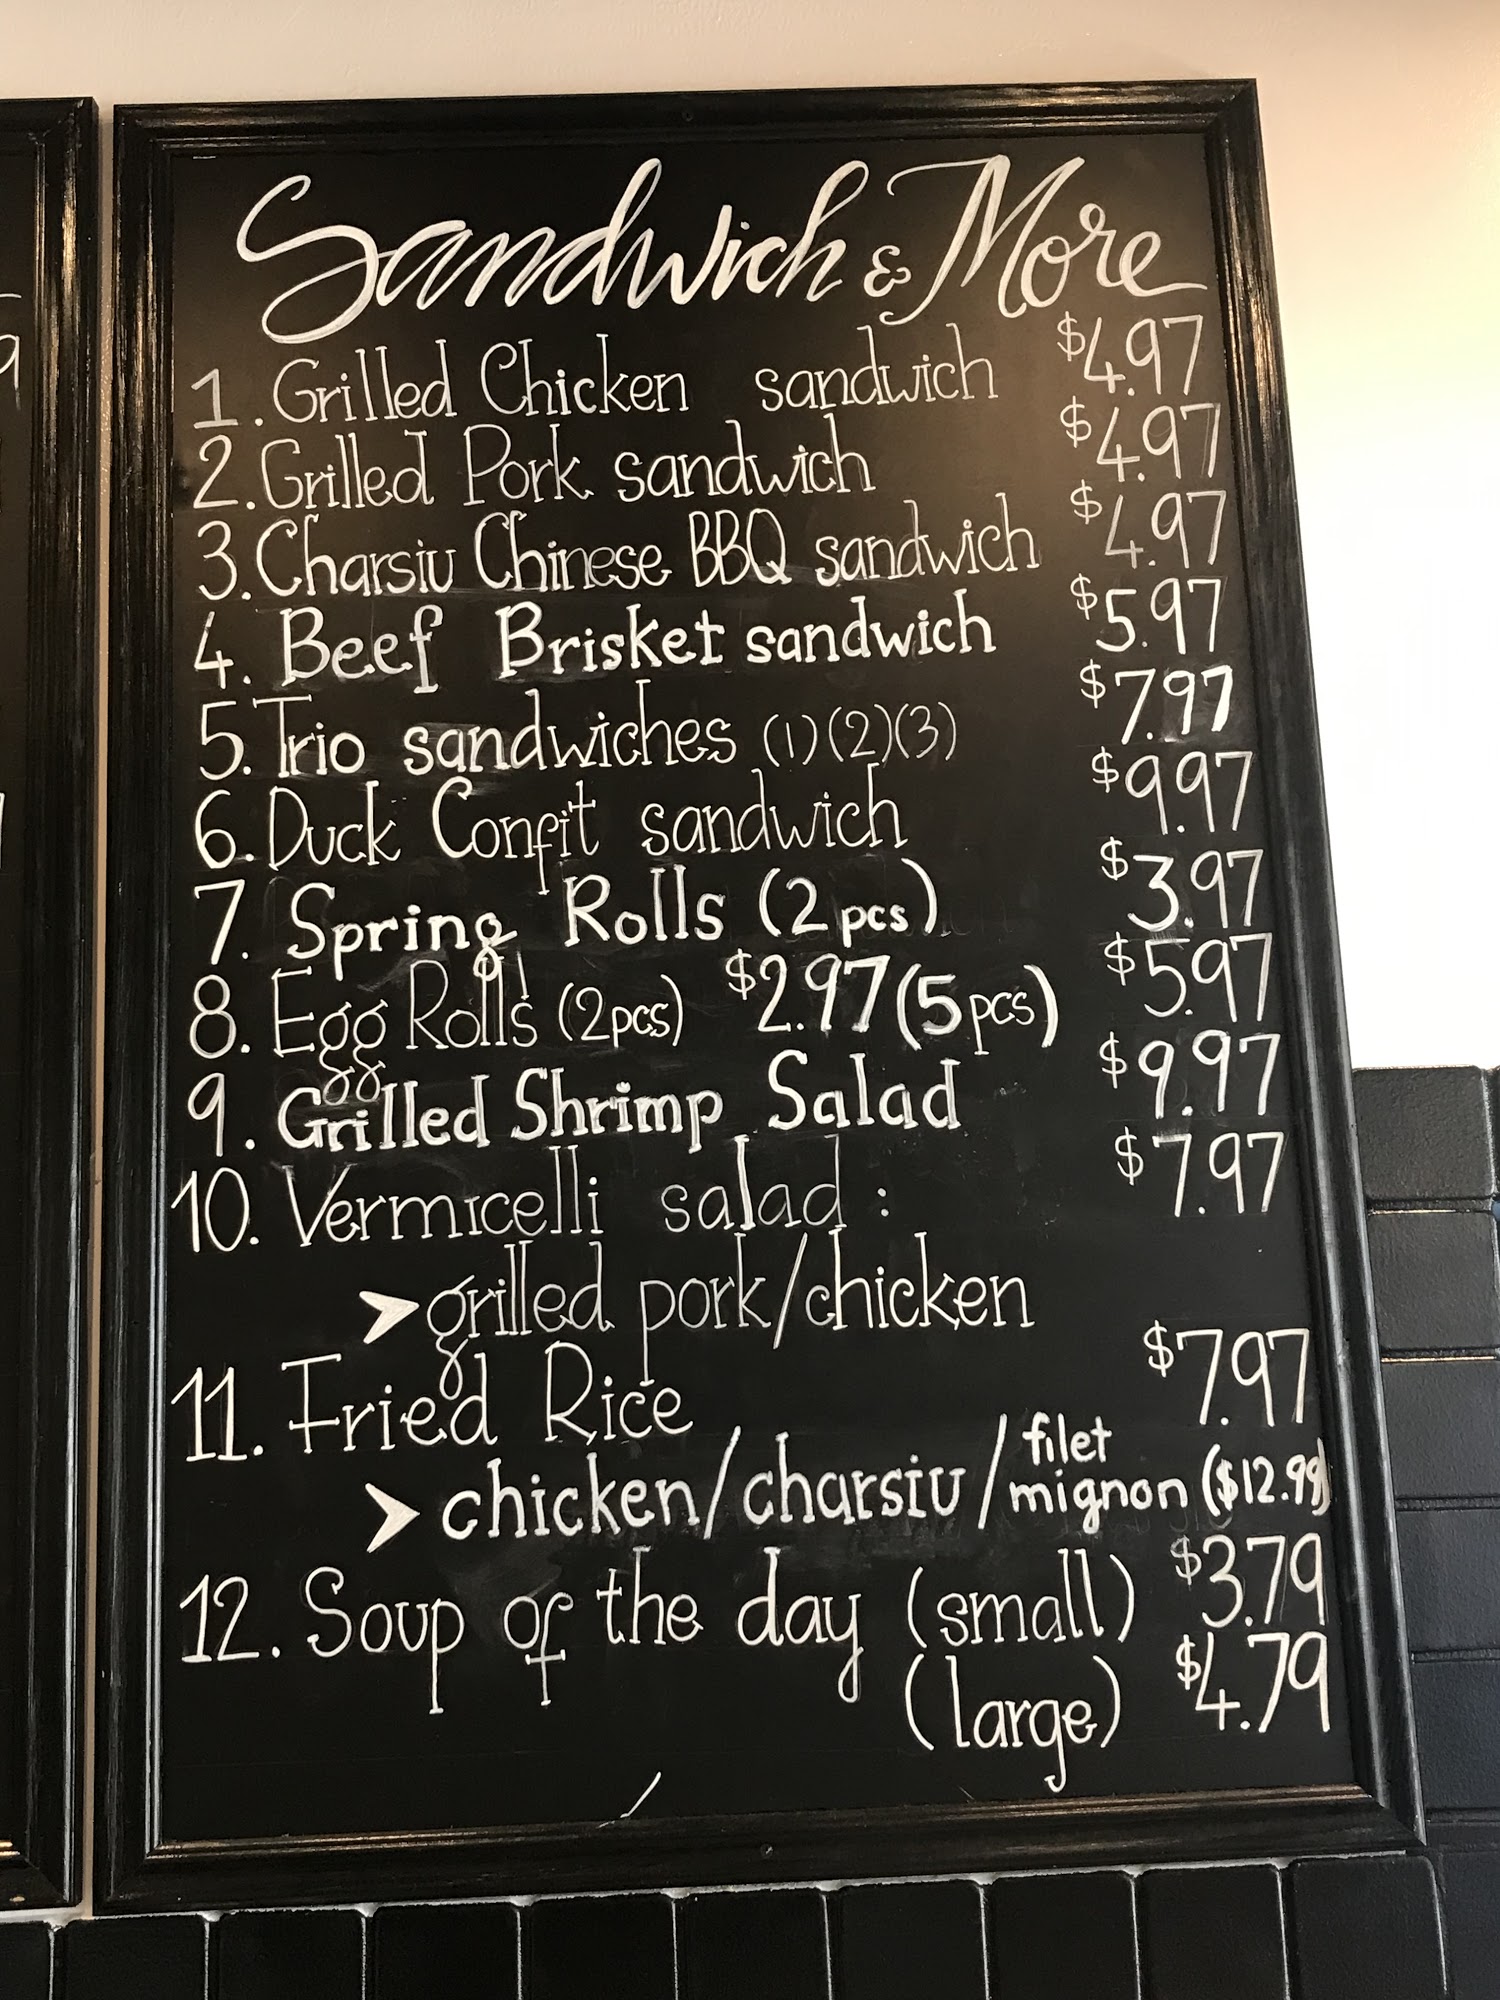 Sandwich & More
1. Grilled Chicken sandwich $4.97
2. Grilled Pork sandwich $4.97
3. Charsiu Chinese BBQ sandwich $4.97
4. Beef Brisket sandwich $5.97
5. Trio sandwiches (1)(2)(3) $7.97
6. Duck Confit sandwich $9.97
7. Spring Rolls (2pcs) $3.97
8. Egg Rolls (2pcs) $2.97 (5pcs) $5.97
9. Grilled Shrimp Salad $9.97
10. Vermicelli salad : $7.97
➤ grilled pork/chicken
11. Fried Rice $7.97
➤ chicken/charsiu/filet mignon ($12.99)
12. Soup of the day (small) $3.79
(large) $4.79